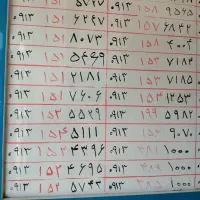 ۰۹۱۳ ۱۵۱ ۵۷۲۷ ۰۹۱۳ ۱۵۷ ۹۵۶۵
۰۹۱۳ ۱۵۱ ۶۲۴۷ ۰۹۱۳ ۱۵۷ ۹۸۴۲
۰۹۱۳ ۱۵۱ ۸۰۷۳ ۰۹۱۳ ۱۵۸ ۴۰۰۴
۰۹۱۳ ۱۵۱ ۵۴۶۹ ۰۹۱۳ ۱۵۳ ۷۱۸۴
۰۹۱۳ ۱۵۱ ۲۱۸۱ ۰۹۱۳ ۱۵۳ ۷۱۸۵
۰۹۱۳ ۱۵۱ ۷۶۰۶ ۰۹۱۳ ۱۵۴ ۱۲۵۳
۰۹۱۳ ۱۵۳ ۵۵۲۹ ۰۹۱۳ ۱۹۹ ۵۹۸۲
۰۹۱۳ ۱۵۴ ۵۱۱۱ ۰۹۱۳ ۱۵۲ ۹۰۷۰
۰۹۱۳ ۱۵۲ ۴۳۹۶ ۰۹۱۳ ۱۰۰۰
۰۹۱۳ ۱۵۲ ۴۶۹۵ ۰۹۱۳ ۱۰۰۰
۰۹۱۳ ۱۵۲ ۵۷۴۳ ۰۹۱۳ ۱۰۰۰